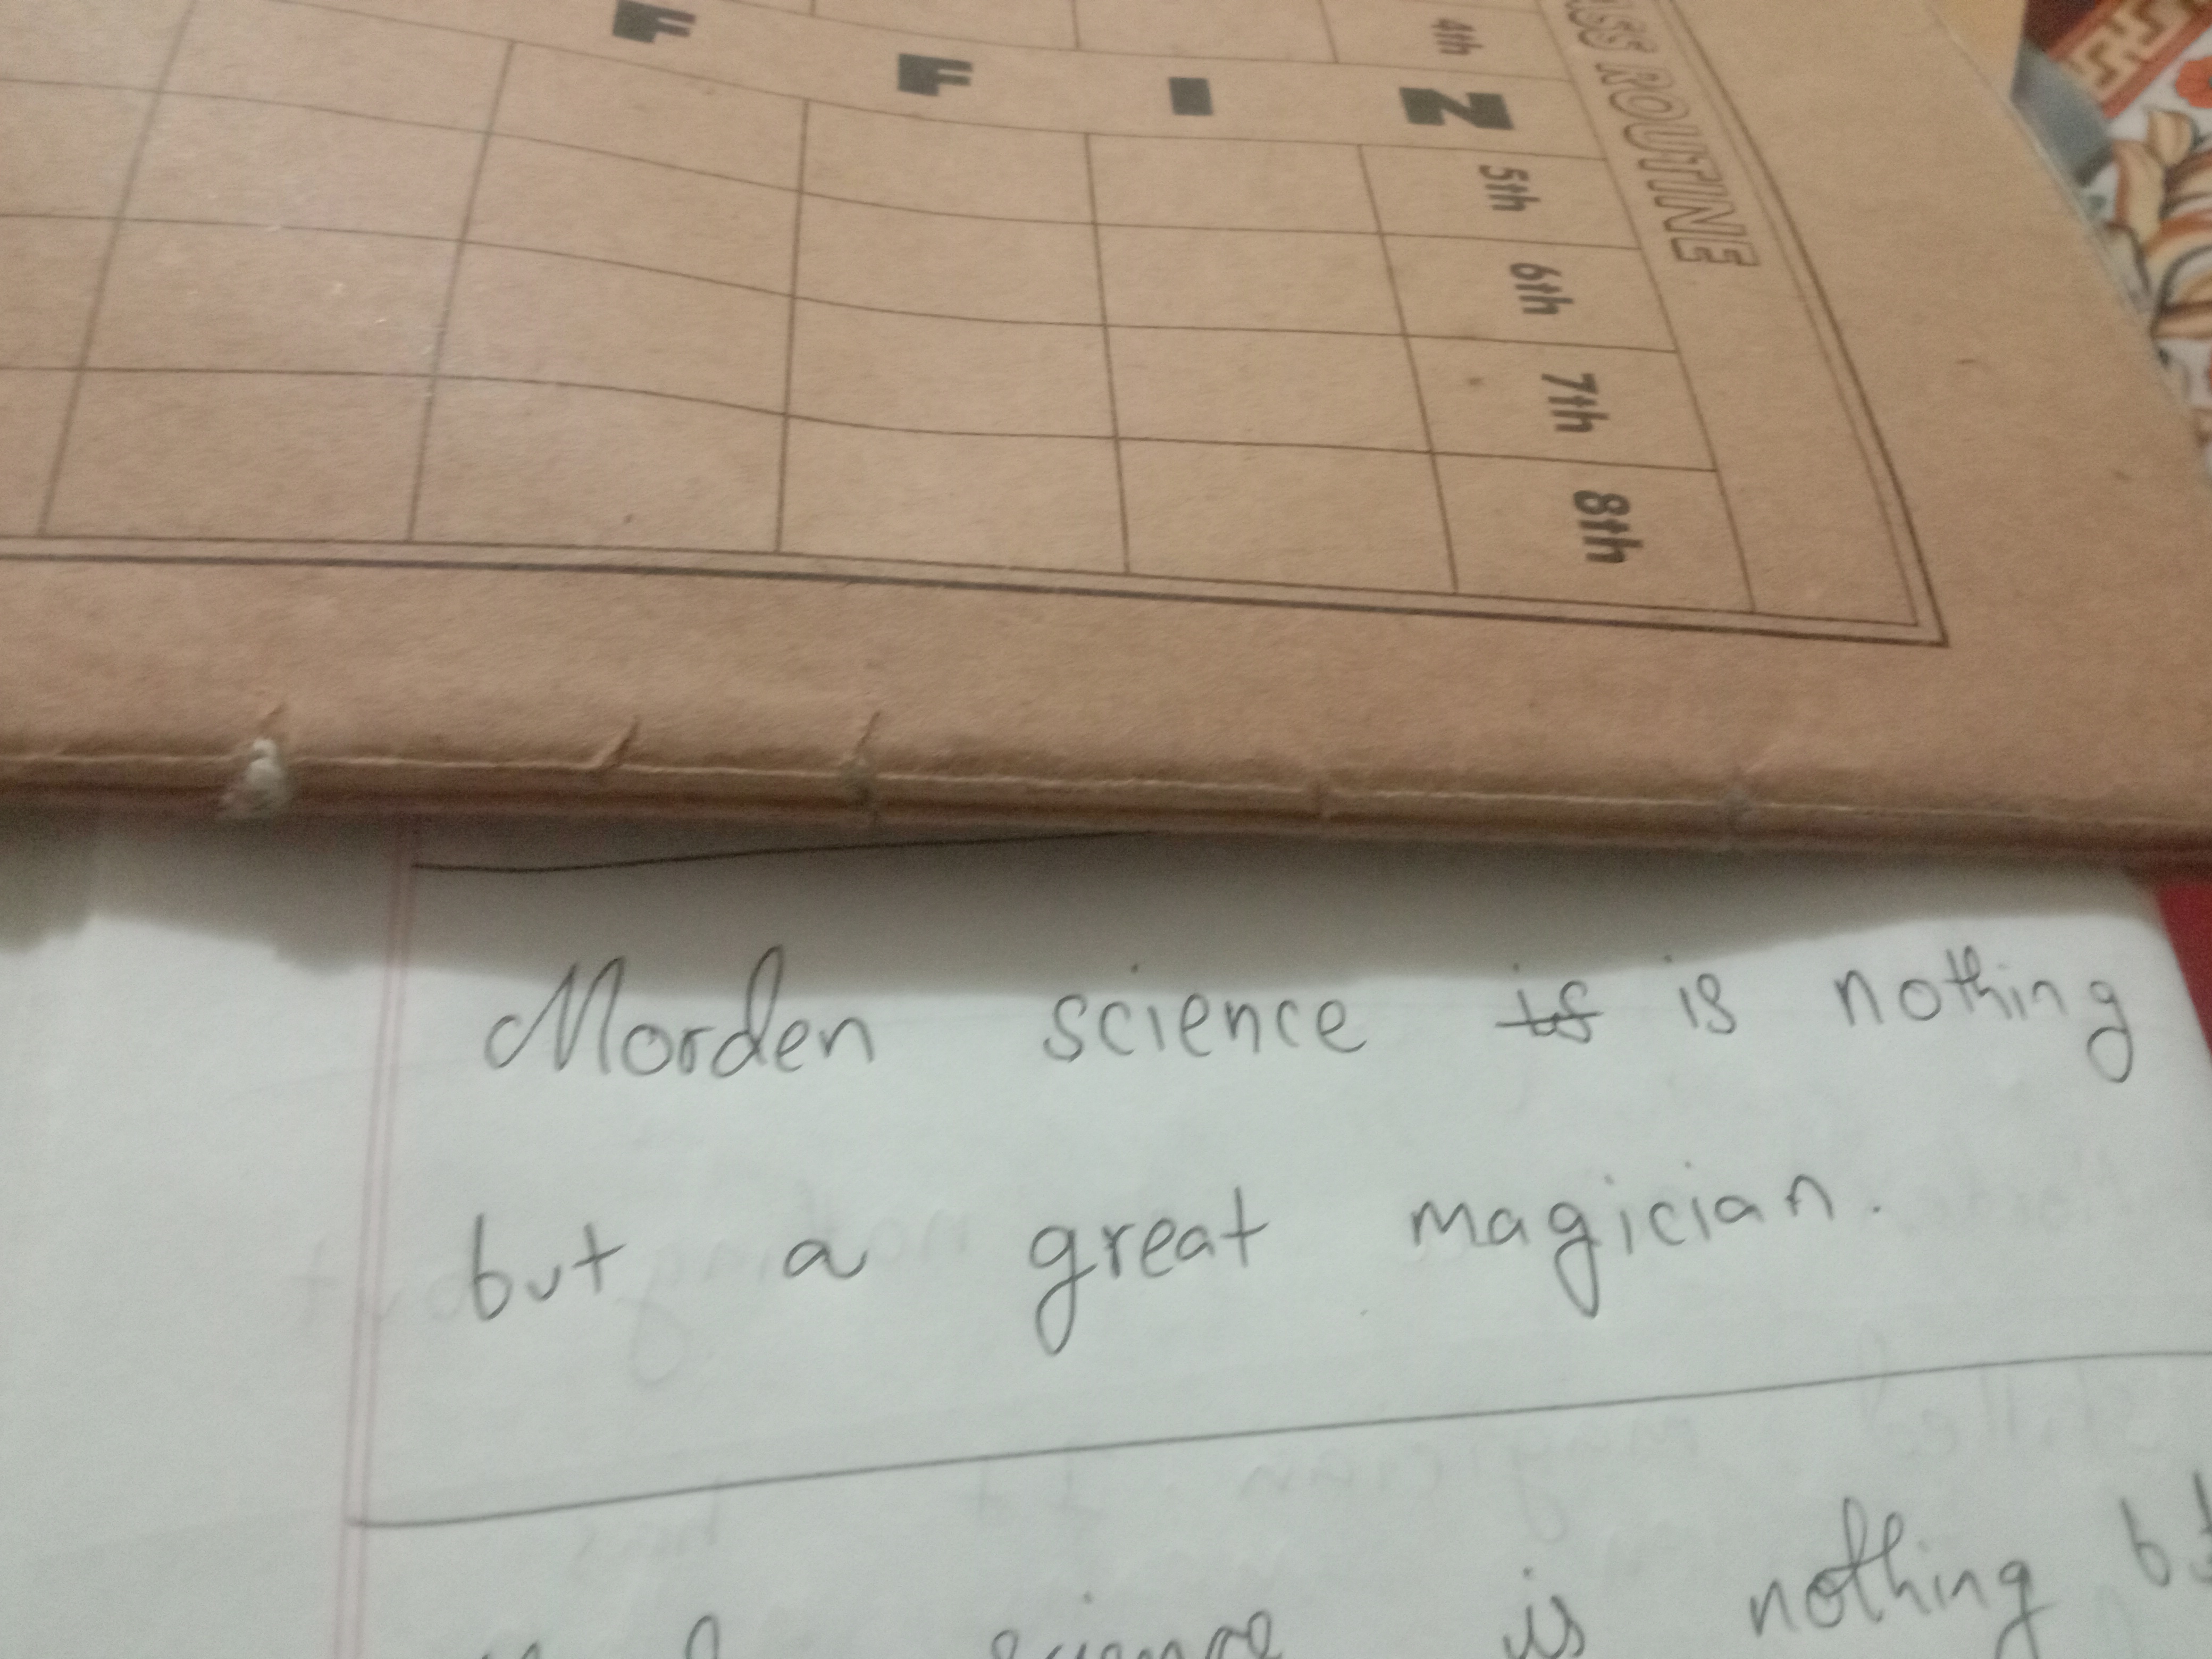 ASS ROUTINE
4th
5th
6th
7th
8th
Z
I
F
F
Morden science is is nothing
but a great magician.
science is nothing